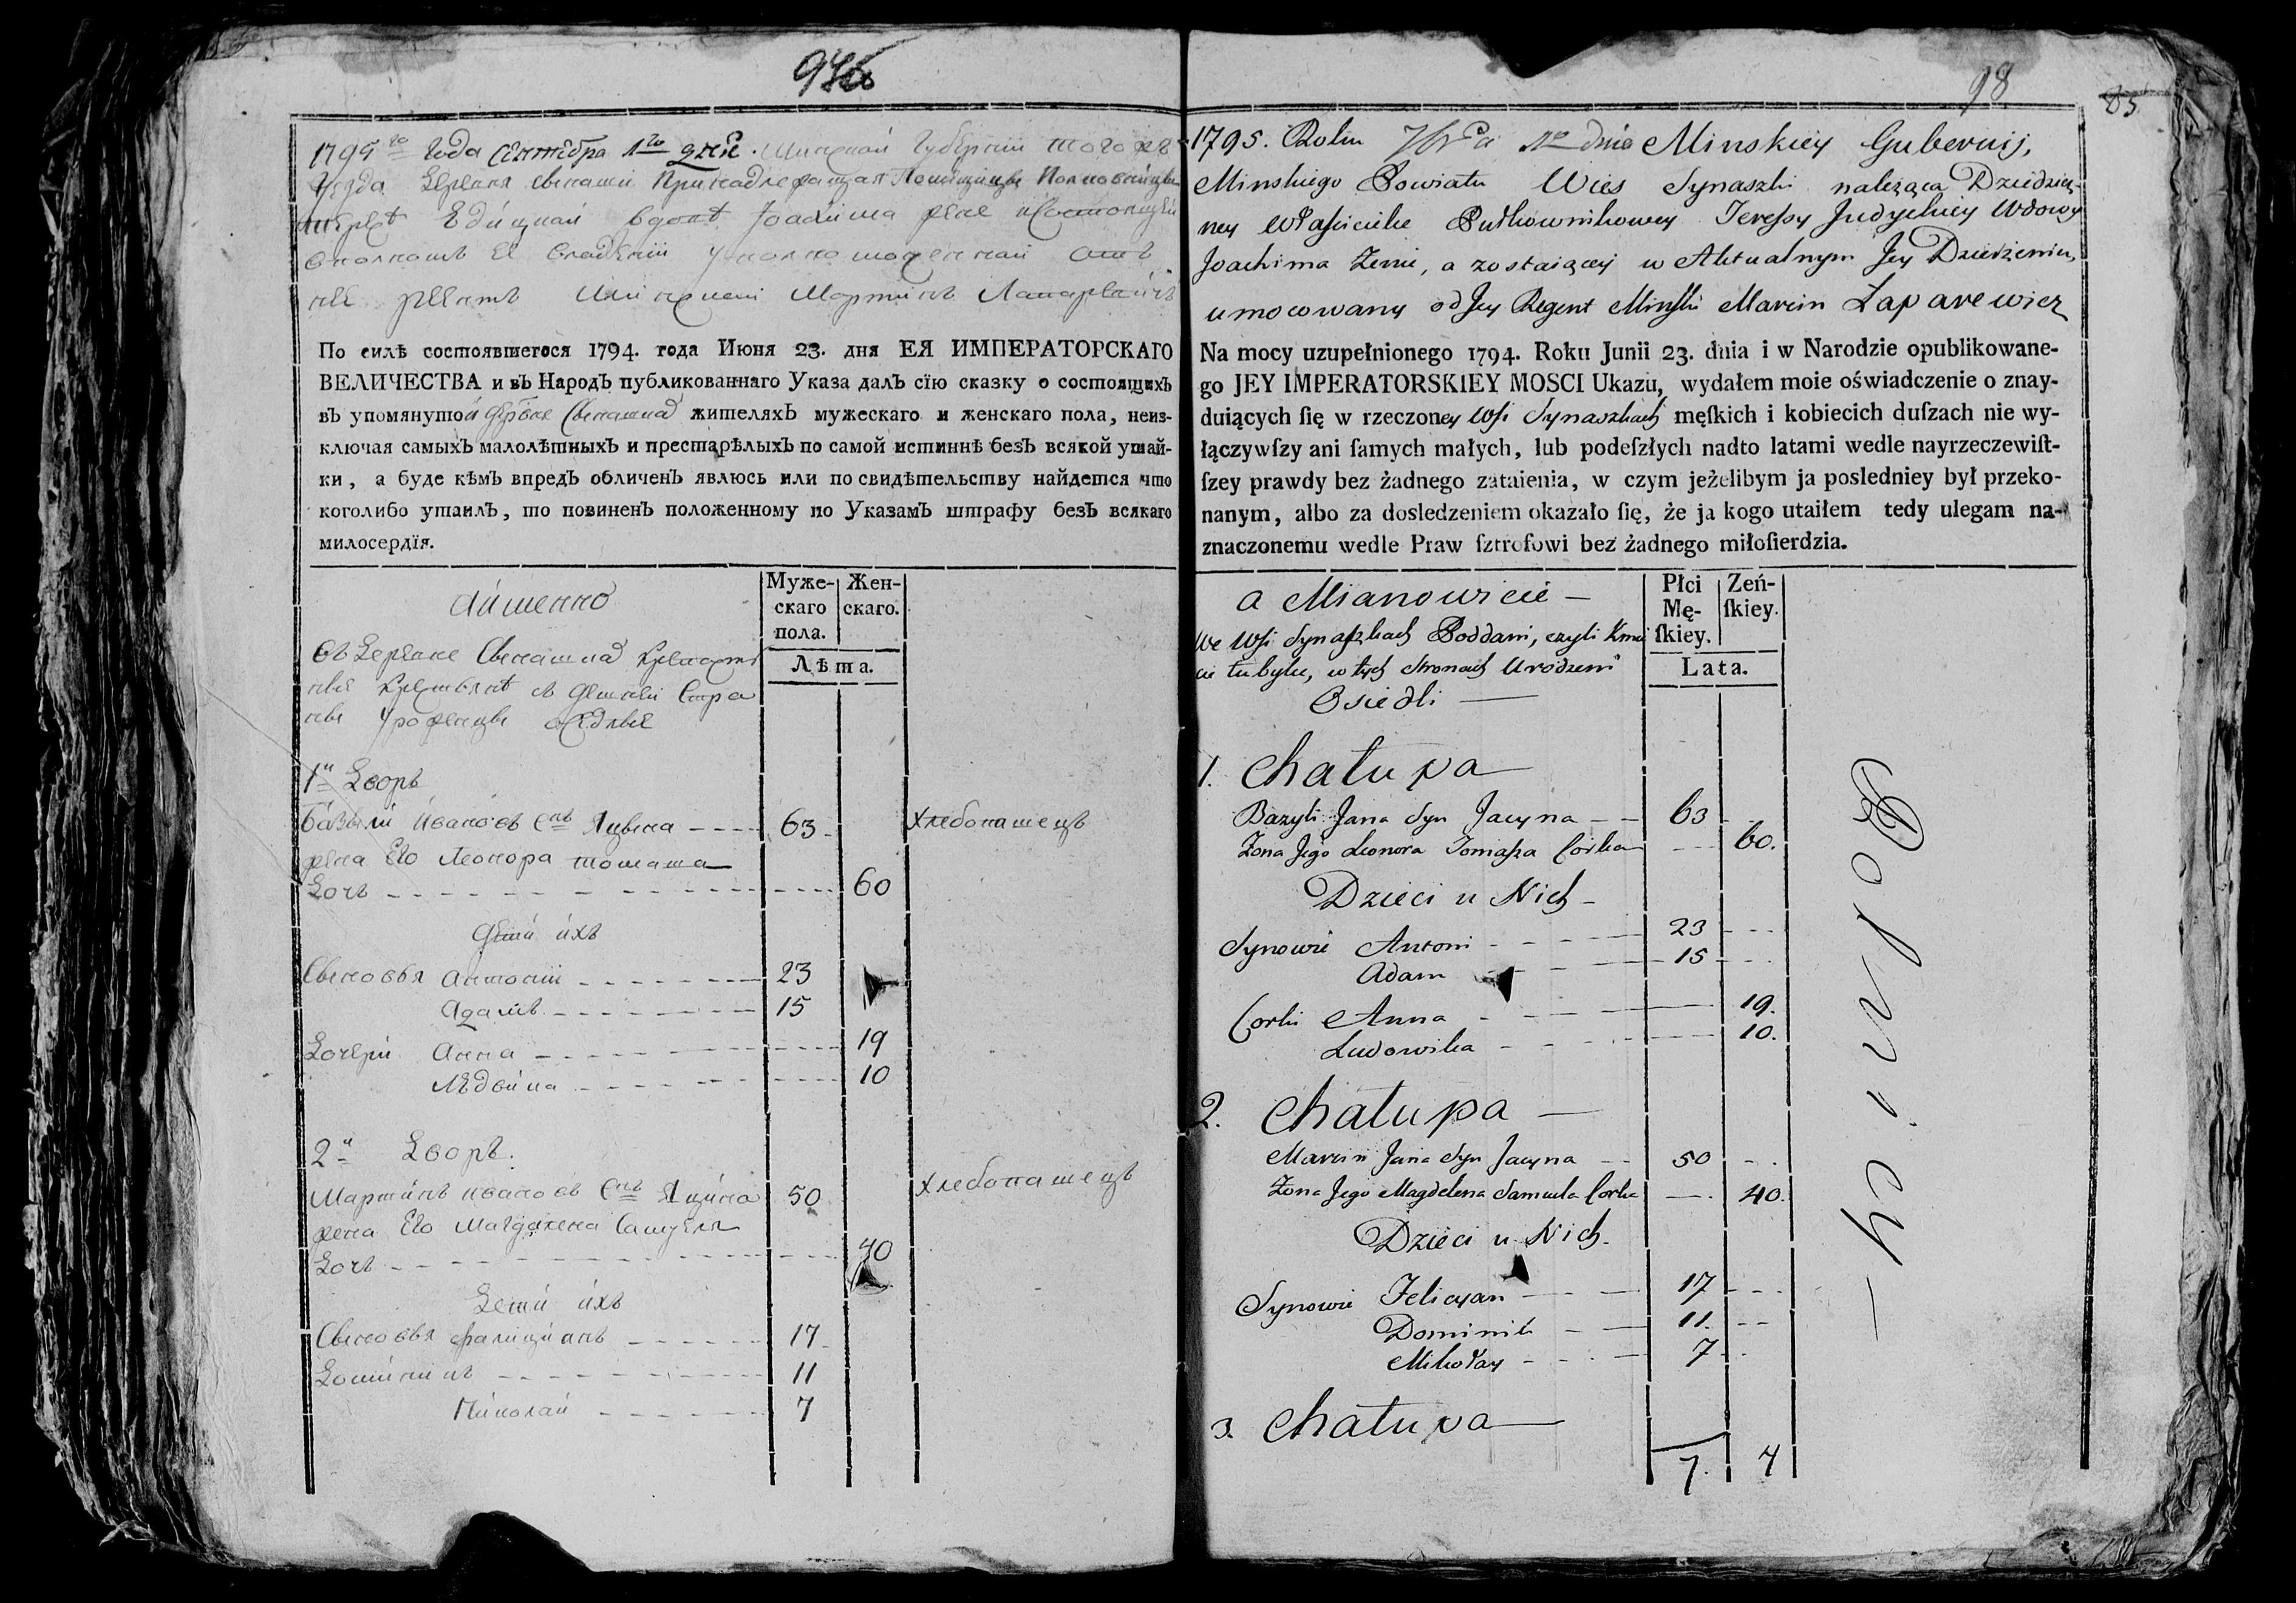 98
85
1795го Года сентебра 1го дня. Минской Губернии того же
Уезда деревня Сынашки принадлежащая Помещице Полковнице
Юдицкой вдове Иоахима жене
владении уполномоченной от
нее регент Минский Мартин Лапаревич
По силѣ состоявшегося 1794. года Июня 23. дня ЕЯ ИМПЕРАТОРСКАГО
ВЕЛИЧЕСТВА и въ Народъ публикованнаго Указа далъ сїю сказку о состоящихъ
въ упомянутой жителяхъ мужескаго и женскаго пола, неиз-
ключая самыхъ малолѣтныхъ и престарѣлыхъ по самой истиннѣ безъ всякой утай-
ки, а буде кѣмъ впредъ обличенъ явлюсь или по свидѣтельству найдется что
коголибо утаилъ, то повиненъ положенному по Указамъ штрафу безъ всякаго
милосердїя.
а именно
Муже-
скаго
пола.
Жен-
скаго.
Лѣта.
1й Дворъ
Базыли Ивановъ Снъ Яцына 63 Хлебопашецъ
жена Его Леонора томаша
Дочь 60
дети ихъ
Сыновья Антонии 23
Адамъ 15
Дочери Анна 19
Людвика 10
2й Дворъ.
Мартинъ Ивановъ Снъ Яцина 50 Хлебопашецъ
жена Его Магдалена Самуеля
Дочь 40
Дети ихъ
Сыновья Фелицианъ 17
Доминикъ 11
Миколай 7
1795. Roku 7bra 1go dnia Minskiey Gubernij,
Minskiego Powiatu Wies Synaszki należąca Dziedzicz-
ney Właścicielce Pułkownikowey Teressy Judyckiey Wdowy
Joachima Żenie, a zostaiącey w Aktualnym Jey Dziedzeniu,
umocowany od Jey Regent Minski Marcin Łaparewicz
Na mocy uzupełnionego 1794. Roku Junii 23. dnia i w Narodzie opublikowane-
go JEY IMPERATORSKIEY MOSCI Ukazu, wydałem moie oświadczenie o znay-
duiących ſię w rzeczoney Wsi Synaszkach męſkich i kobiecich duſzach nie wy-
łączywſzy ani ſamych małych, lub podeſzłych nadto latami wedle nayrzeczewiſt-
ſzey prawdy bez żadnego zataienia, w czym jeżelibym ja posledniey był przeko-
nanym, albo za dosledzeniem okazało ſię, że ja kogo utaiłem tedy ulegam na-
znaczonemu wedle Praw ſztrofowi bez żadnego miłoſierdzia.
a Mianowicie —
Płci
Mę-
ſkiey.
Zeń-
ſkiey.
Lata.
we Wsi Synaszkach Poddani, czyli Kmie
cie tubylce, w tych stronach Urodzeni
Osiedli —
1. Chałupa
Bazyli Jana Syn Jacyna 63
Żona Jego Leonora Tomasza Corka 60.
Dzieci u Nich
Synowie Antoni 23
Adam 15
Corki Anna 19.
Ludowika 10.
2. Chałupa —
Marcin Jana Syn Jacyna 50
Żona Jego Magdelena Samuela Corka 40.
Dzieci u Nich
Synowie Felicyan 17
Dominik 11.
Mikołay 7
3. Chałupa
7. 4
Rolnicy —